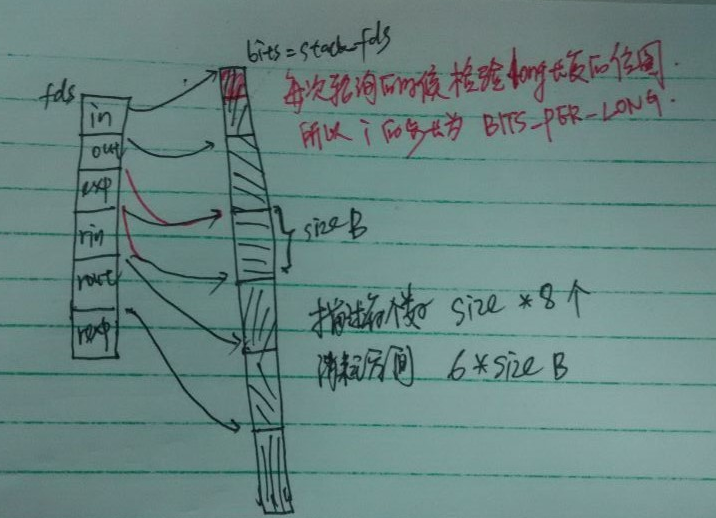 bits = stack_fds
fds
每次轮询的时候检验long长度的位图.
所以 i 的步长为 BITS_PER_LONG.
in
out
exp
rin
rout
rexp
size B
描述符个数 size * 8 个
消耗空间 6 * size B